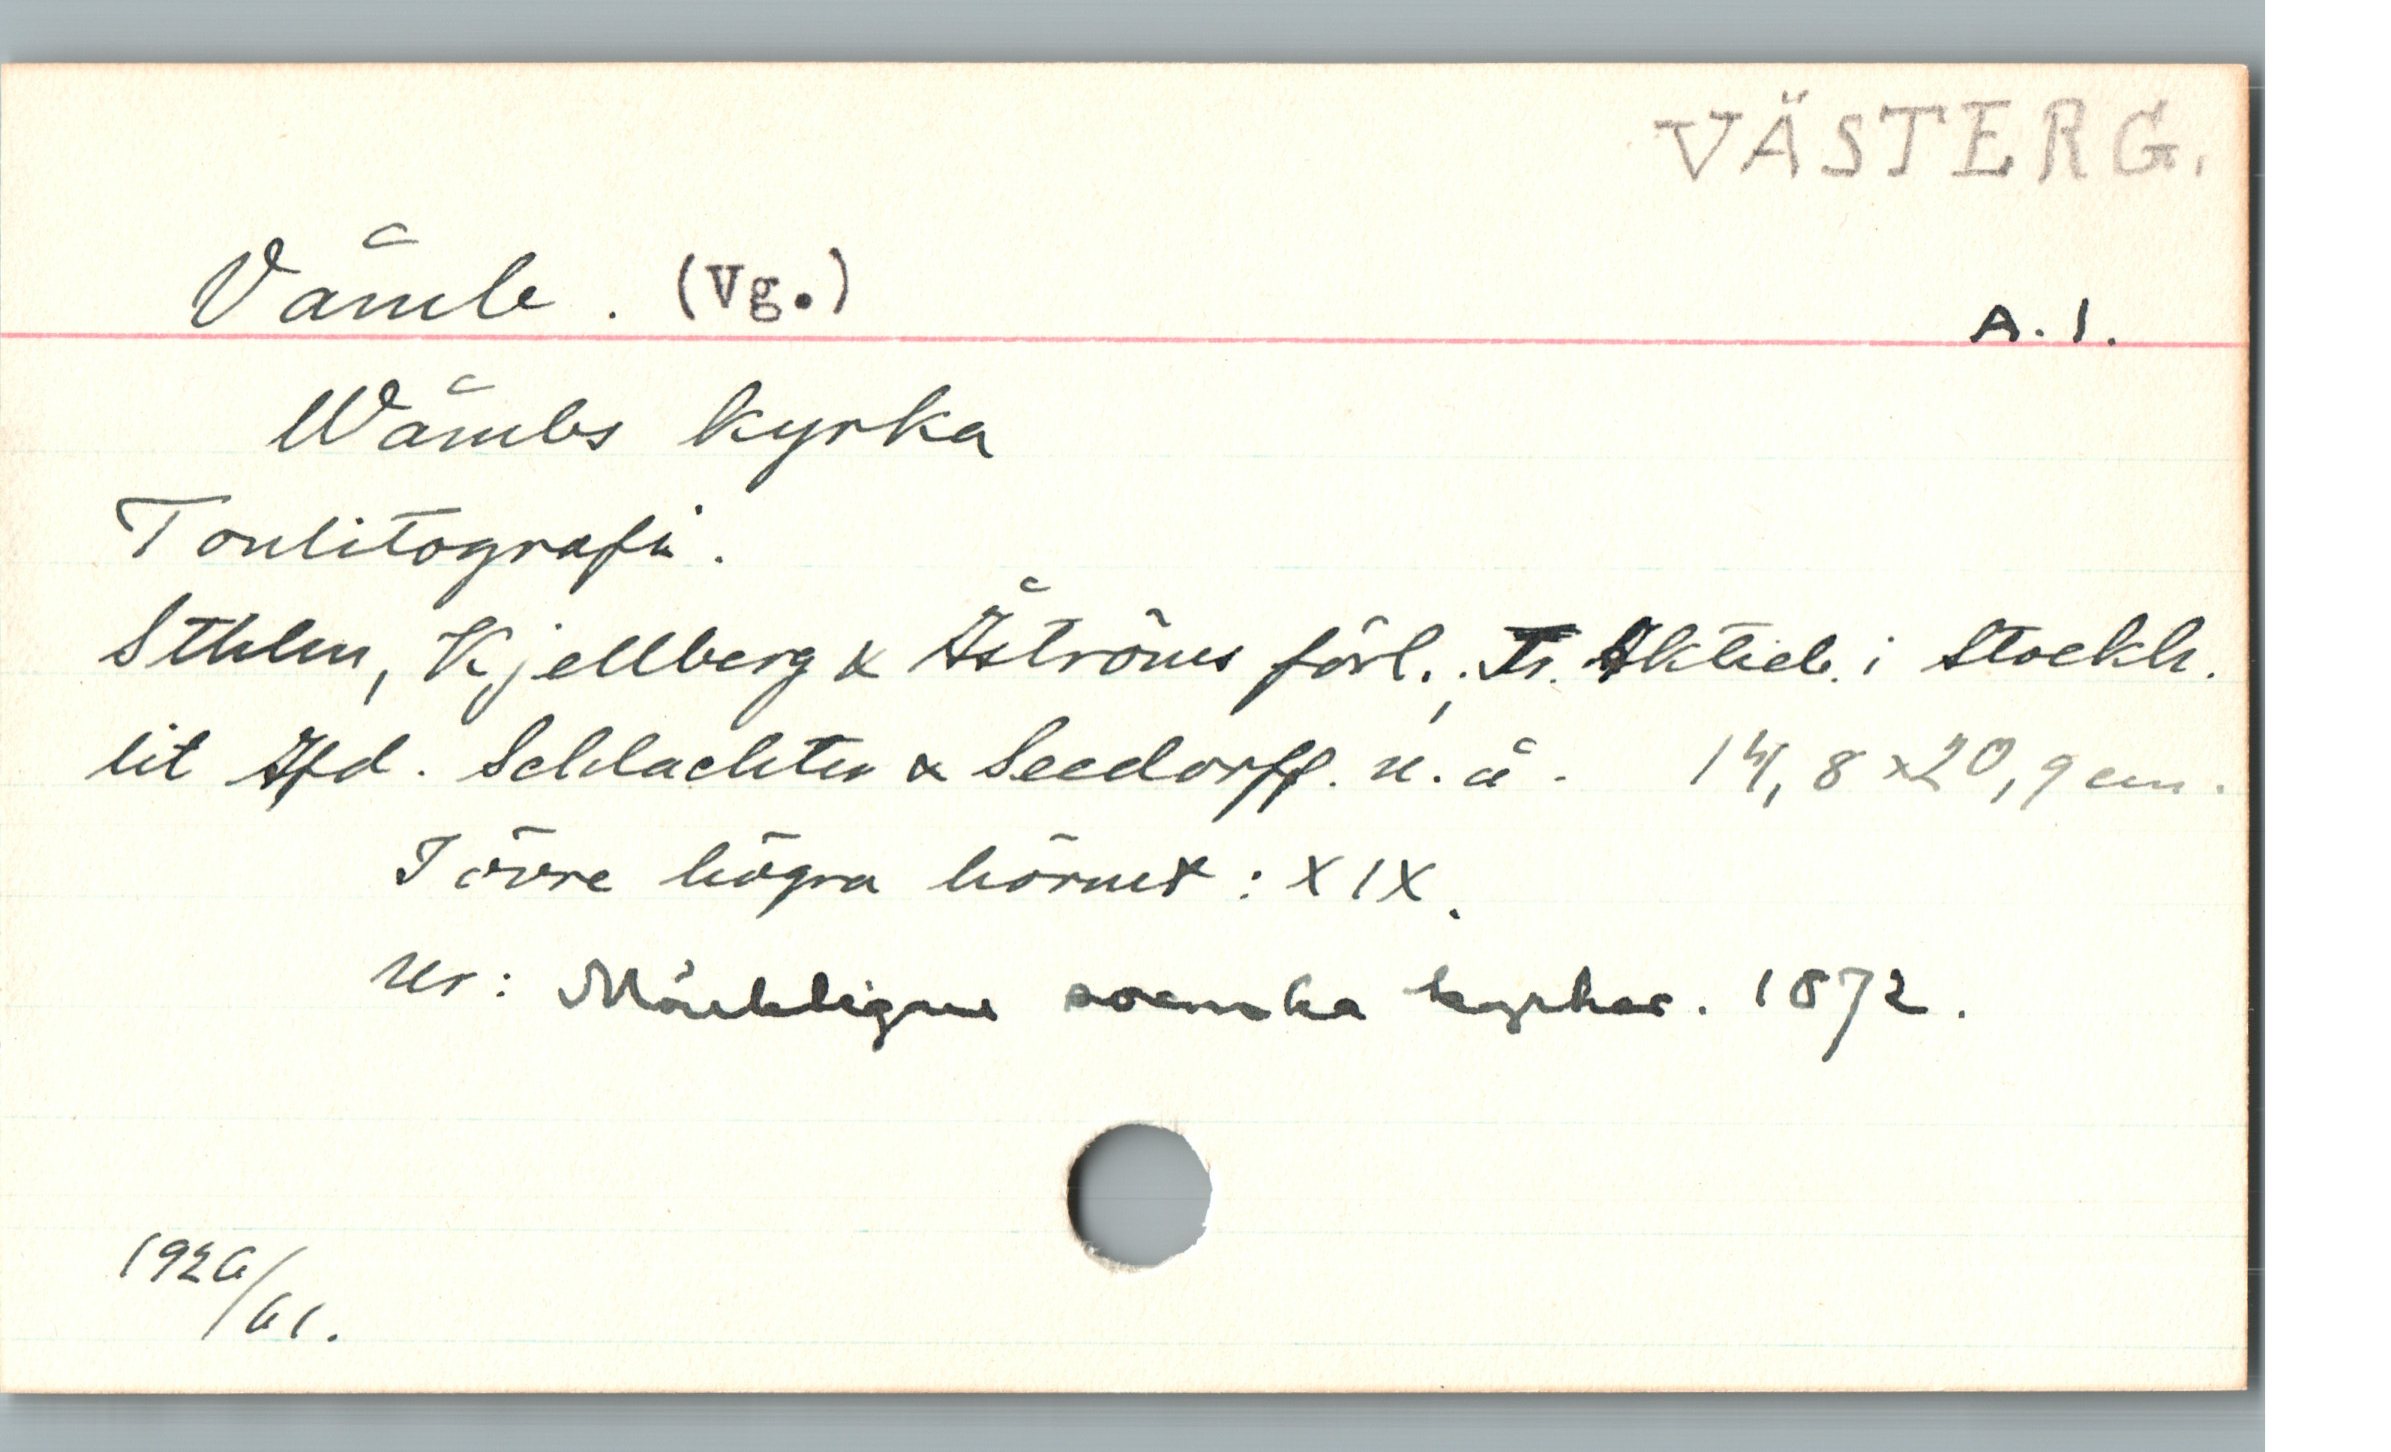 VÄSTERG.
Vämb. (Vg.)
A. 1.
Wämbs kyrka
Tonlitografi.
Sthlm, Kjellberg & Åströms förl., Tr. Aktieb. i Stockh.
lit Afd. Schlachter & Seedorff. u. å. 14,8 x 20,9 cm.
I övre högra hörnet: XIX.
Ur: Märkligare svenska kyrkor. 1872.
1926/61.